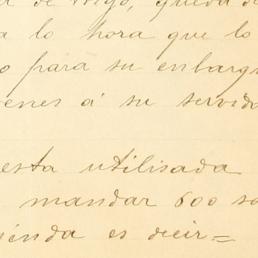 de Vigo, queda de
a lo hora que lo
o para su enbarg
enes á su servida
esta utilisada
mandar 600 sa
iénda es decir=